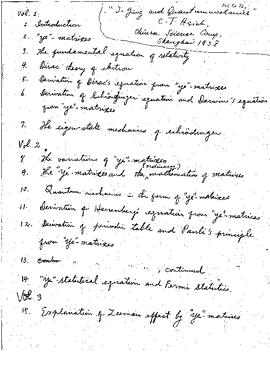 Vol. 1.
"I-Ging and Quantummechanics"
C. T. Hsieh,
China Science Corp.,
Shanghai 1938
1. Introduction
2. "ye"-matrixes
3. The fundamental equation of relativity
4. Dirac theory of electron
5. Derivation of Dirac's equation from "ye"-matrixes
6. Derivation of Schödinger equation and Darwin's equation
from "ye"-matrixes
7. The eigen-state mechanics of Schrödinger
Vol 2.
8 The variations of "ye"-matrixes
9. The "ye"-matrixes and the (ordinary) mathematics of matrixes
10. Quantum mechanics in the form of "ye"-matrixes
11. Derivation of Heisenberg equation from "ye"-matrixes
12. Derivation of periodic table and Pauli's principle
from "ye"-matrixes
13. " " , continued
14. "ye"-statistical equation and Fermi statistics.
Vol. 3
15. Explanation of Zeeman effect by "ye" matrixes